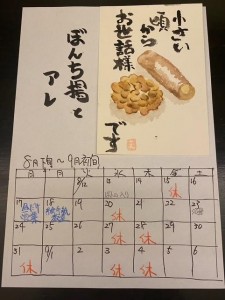 小さい
頃から
お世話様
です
ぼんち揚と
アレ
8月下旬~9月初旬
日 月 火 水 木 金 土
8/12 13 14 15 16
休
17 18 19 20 21 22 23
営業 休
24 25 26 27 28 29 30
休 休
31 9/1 2 3 4 5 6
休 休